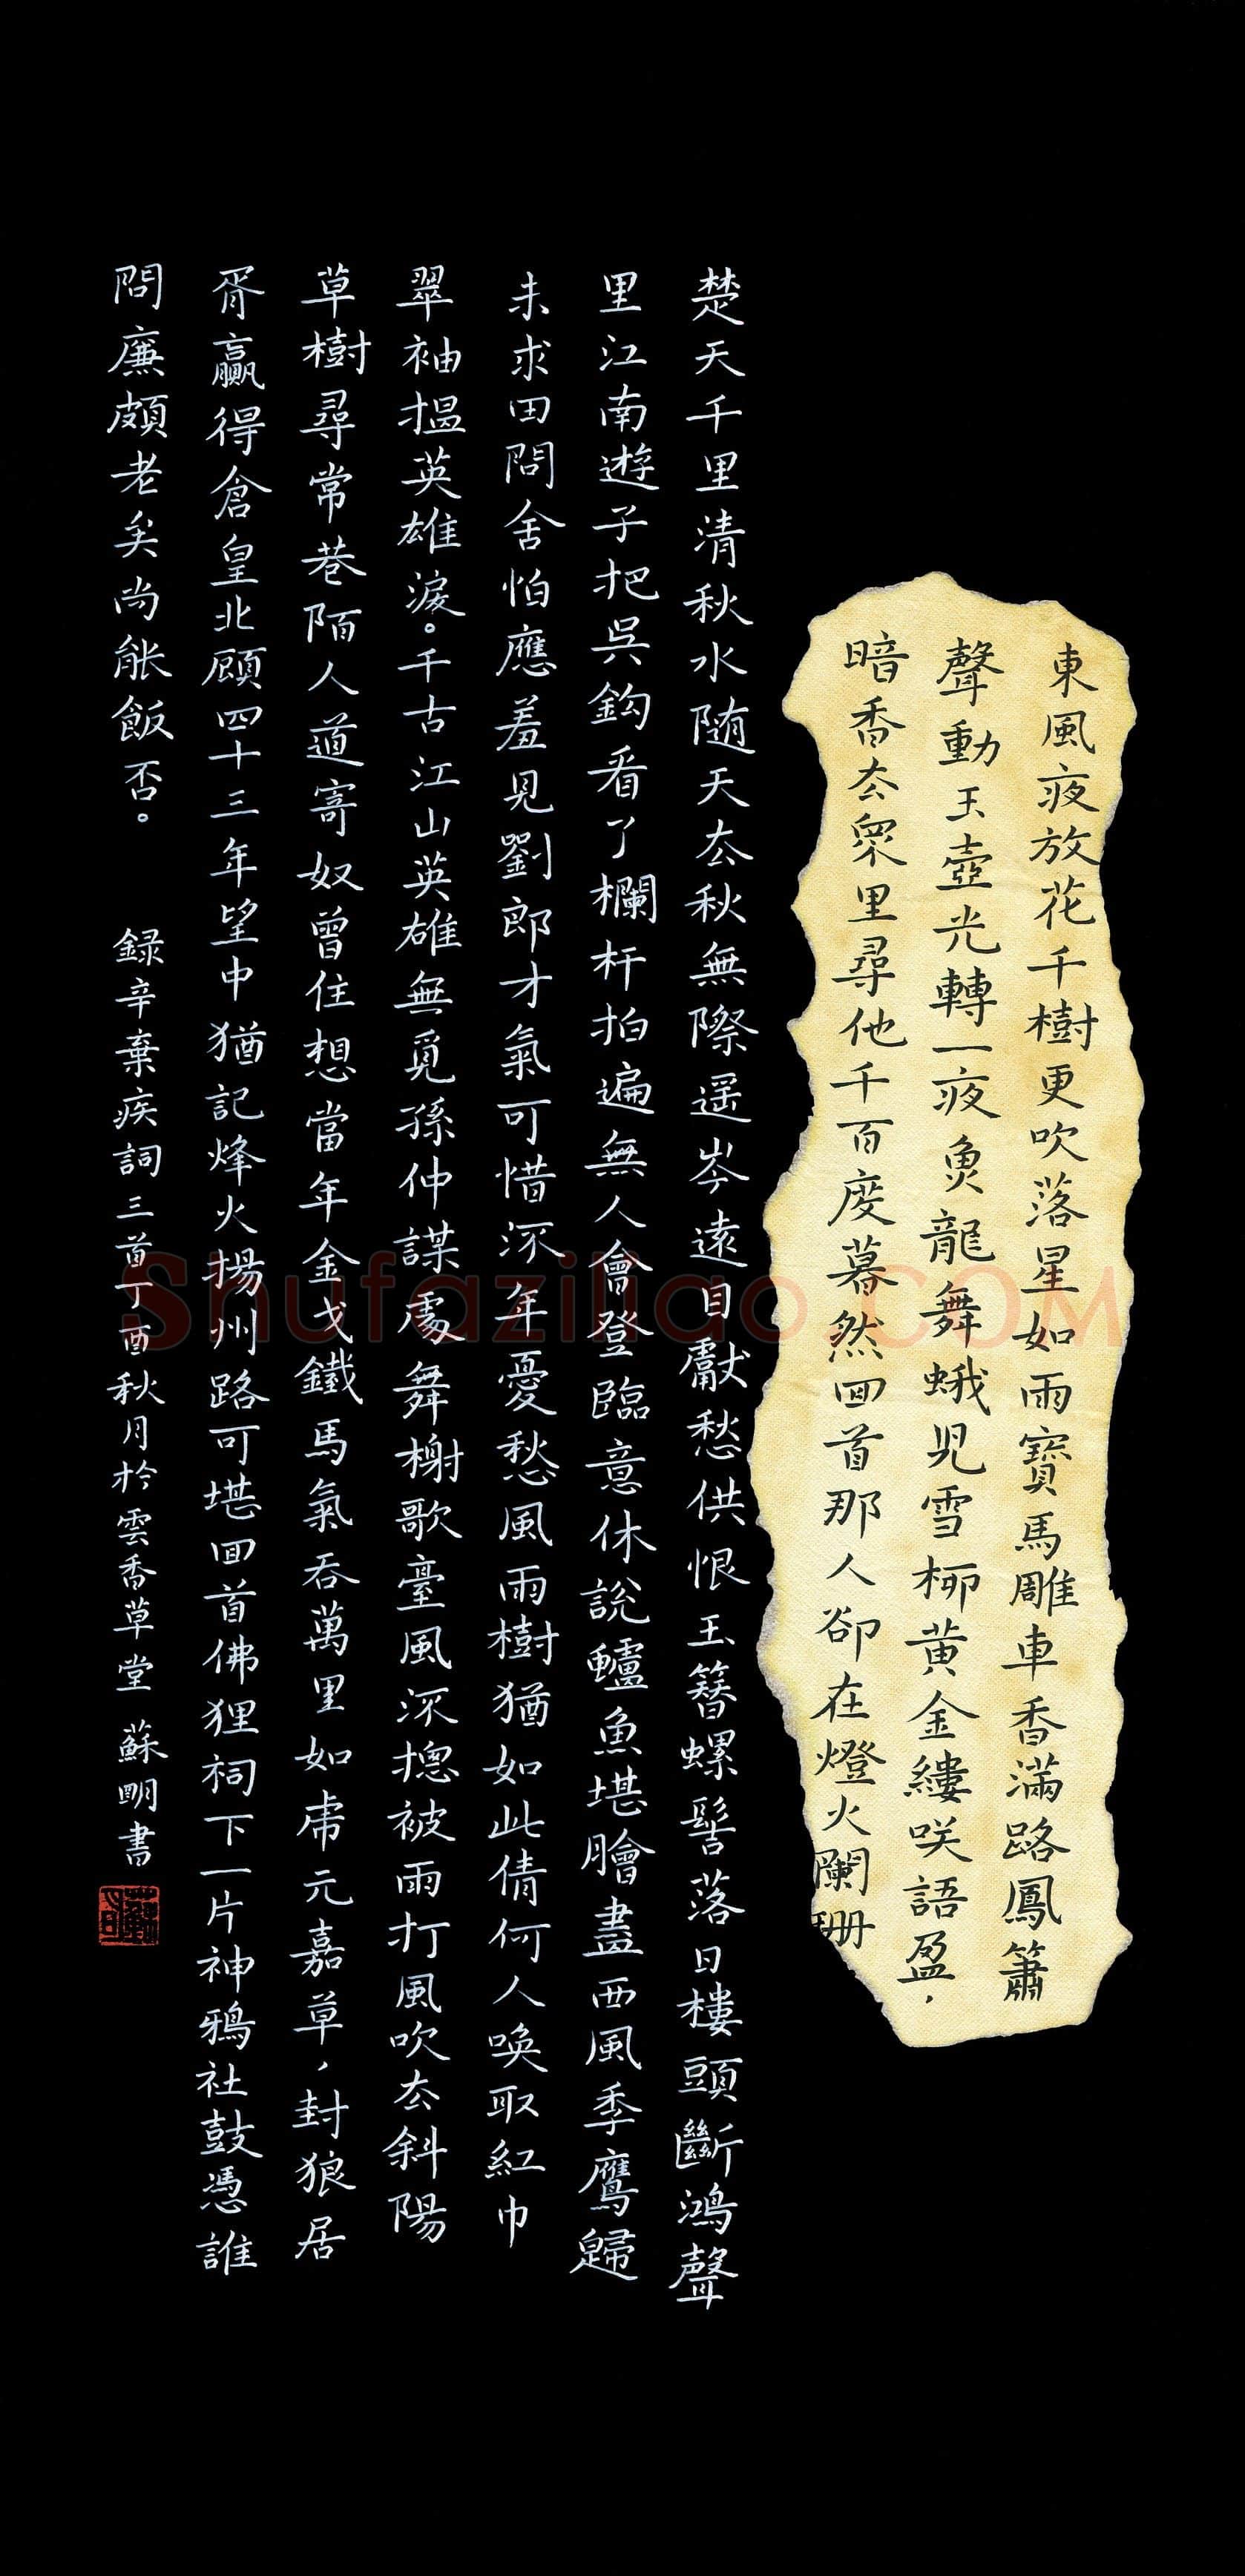 東風夜放花千樹更吹落星如雨寶馬雕車香滿路鳳簫
聲動玉壺光轉一夜魚龍舞蛾兒雪柳黃金縷咲語盈，
暗香厺眾里尋他千百度暮然回首那人卻在燈火闌珊
楚天千里清秋水随天厺秋無際遥岑遠目獻愁供恨玉簪螺髻落日樓頭斷鴻聲
里江南遊子把吳鈎看了欄杆拍遍無人會登臨意休說鱸魚堪膾盡西風季鷹歸
未求田問舍怕應羞見劉郎才氣可惜流年憂愁風雨樹猶如此倩何人喚取紅巾
翠袖揾英雄淚。千古江山英雄無覓孫仲謀處舞榭歌臺風流摠被雨打風吹厺斜陽
草樹尋常巷陌人道寄奴曾住想當年金戈鐵馬氣吞萬里如虎元嘉草，封狼居
胥贏得倉皇北顧四十三年望中猶記烽火揚州路可堪回首佛狸祠下一片神鴉社鼓憑誰
問廉頗老矣尚能飯否。
録辛棄疾詞三首丁酉秋月於雲香草堂 蘇明書
Shufaziliao.COM